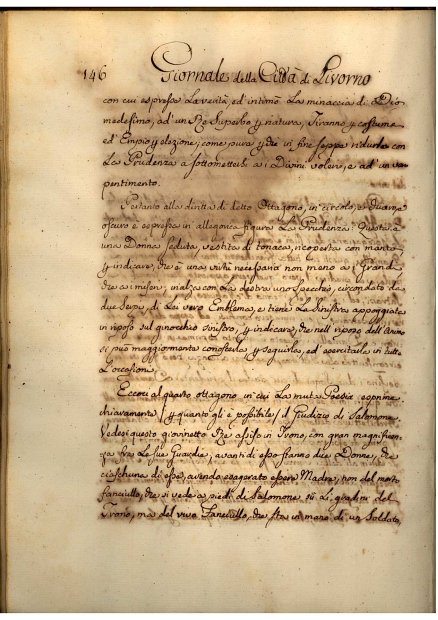 146 Giornale della Città di Livorno
con cui espressa la verità, ed intimò la minaccia di Dio
medesimo, ad un Re superbo per natura, Tiranno per costume
ed Empio per elezione; come pura per che in fine seppe ridurlo con
La Prudenza a sottomettersi a i Divini voleri, e ad un
pentimento.
Pertanto alla diritta di detto Ottagono, in circolo, e chiaro
oscuro è espressa in allegorica figura La Prudenza. Questa è
una Donna seduta, vestita di tonaca, ricoperta con manto
per indicare, che è una virtù necessaria non meno a i Grandi
che a i miseri, inalza con La destra uno specchio, circondato da
due serpi, di Lei vero Emblema, e tiene La sinistra appoggiata
in riposo sul ginocchio sinistro, per indicare, che nell riposo dell'Animo
si può maggiormente conoscerla per seguirla, ed esercitarla in tutte
L'occasioni.
Eccoci al quarto ottagono in cui La muta Poesia esprime
chiaramente / per quanto gli è possibile / il Giudizio di Salomone.
Vedesi questo giovinetto Re assiso in Trono, con gran magnificen
za tra Le sue Guardie, avanti di esso stanno due Donne, che
ciaschuna di esse, avendo esagerato essere Madre, non del morto
fanciullo, che si vede a piedi di Salomone su Li gradini del
Trono, ma del vivo Fanciullo, che sta in mano di un Soldato,